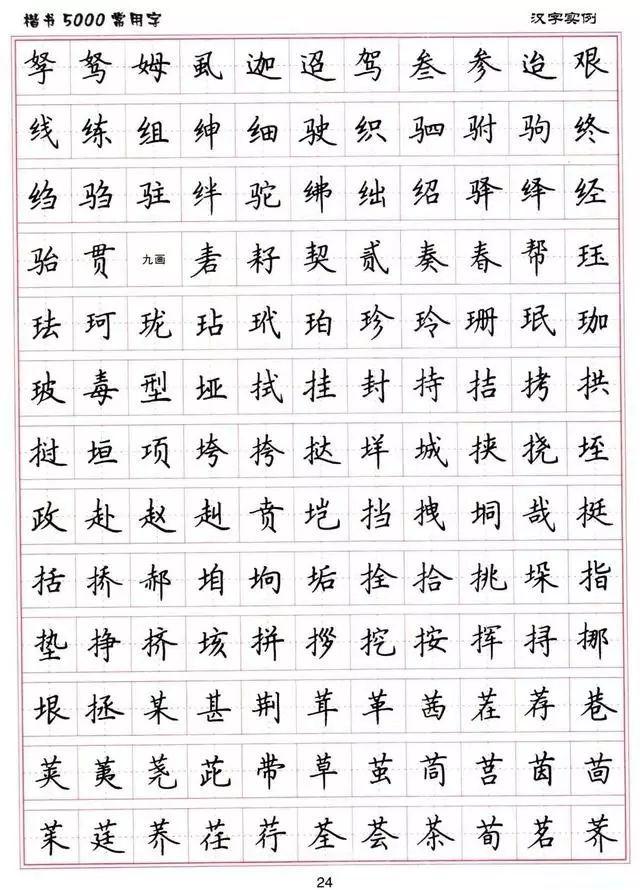 楷书5000常用字 汉字实例
孥 驽 姆 虱 迦 迢 驾 叁 参 迨 艰
线 练 组 绅 细 驶 织 驷 驸 驹 终
绉 驺 驻 绊 驼 绋 绌 绍 驿 绎 经
骀 贯 九画 砉 耔 契 贰 奏 春 帮 珏
珐 珂 珑 玷 玳 珀 珍 玲 珊 珉 珈
玻 毒 型 垭 拭 挂 封 持 拮 拷 拱
挝 垣 项 垮 挎 挞 垟 城 挟 挠 垤
政 赴 赵 赳 贲 垲 挡 拽 垌 哉 挺
括 挢 郝 垍 垧 垢 拴 拾 挑 垛 指
垫 挣 挤 垓 拼 拶 挖 按 挥 挦 挪
垠 拯 某 甚 荆 茸 革 茜 茬 荐 巷
荚 荑 荛 茈 带 草 茧 茼 莒 茵 茴
茱 莛 荞 茌 荇 荃 荟 茶 荀 茗 荠
24